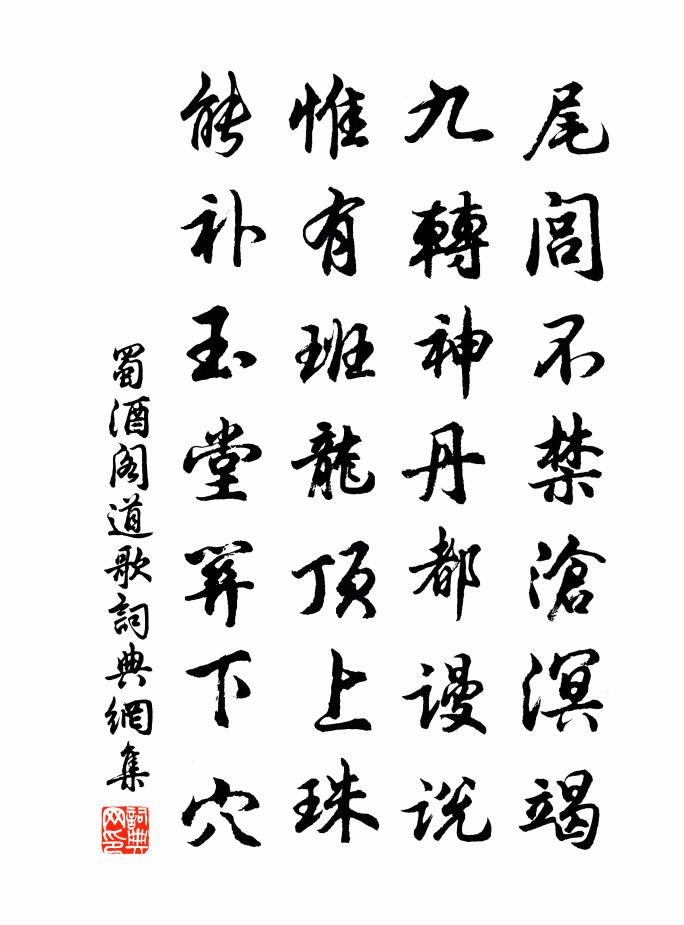 尾閭不禁滄溟竭
九轉神丹都謾説
惟有班龍頂上珠
能补玉堂关下穴
蜀酒閣道歌詞典網集
詞典网印